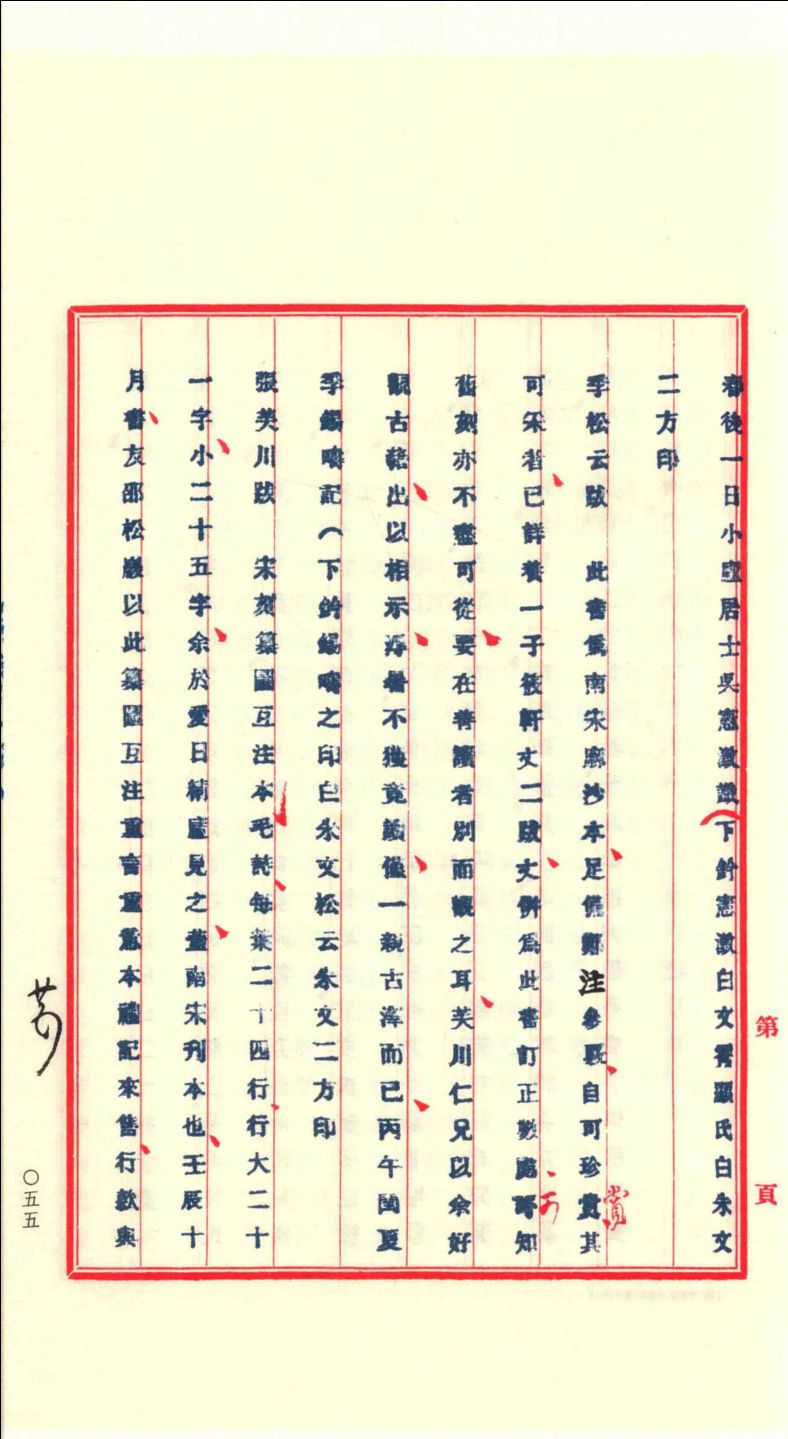 春後一日小匏居士吳憲澂識（下鈐憲澂白文霽顥氏白朱文
二方印
季松云跋　此書爲南宋勝抄本足備鄭注參覈自可珍賞其
可宋者已詳養一子筱軒丈二跋丈倂爲此書訂正數處可知
舊刻亦不盡可從要在善讀者別而識之耳芙川仁兄以余好
觀古籍出以相示溽暑不獲竟讀僅一親古澤而已丙午閏夏
季錫疇記（下鈐錫疇之印白朱文松云朱文二方印
張芙川跋　宋刻纂圖互注本毛詩每葉二十四行行大二十
一字小二十五字余於愛日精廬見之蓋酷宋刊本也壬辰十
月書友邵松巖以此纂圖互注重言重意本禮記來售行款與
第
頁
〇五五